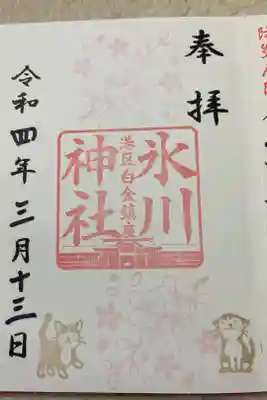 奉拝
氷川
港区白金鎮座
神社
令和四年三月十三日